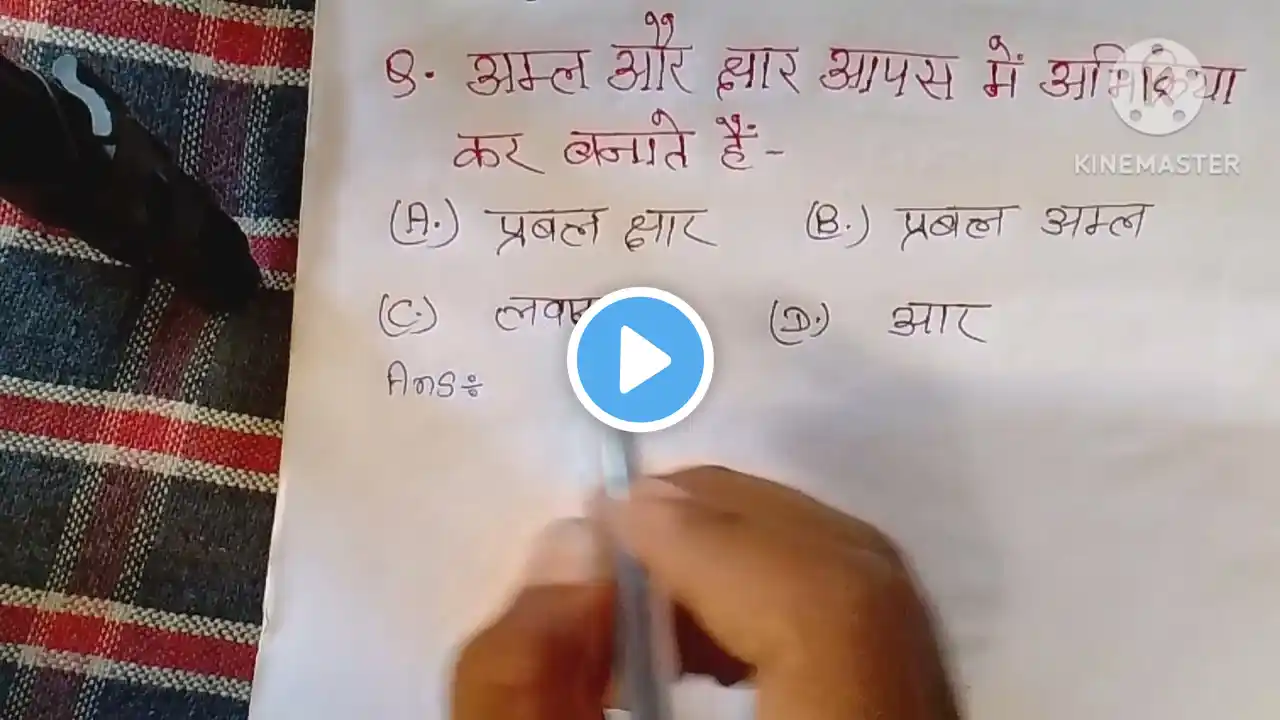 Q. अम्ल और क्षार आपस में अभिक्रिया
KINEMASTER
कर बनाते हैं-
(A.) प्रबल क्षार (B.) प्रबल अम्ल
(C.) (D.) आर
Ans÷